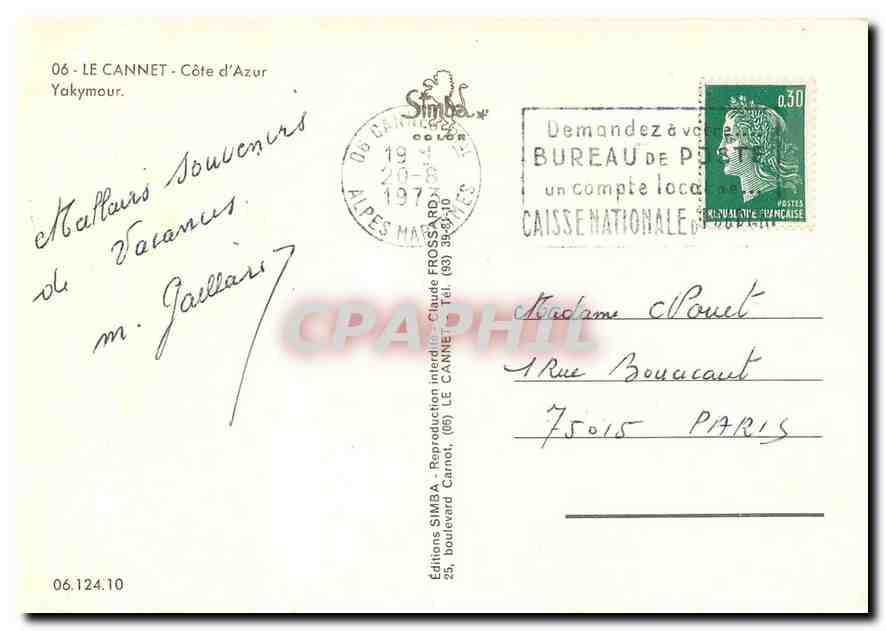 06 - LE CANNET - Côte d'Azur
Yakymour.
Meilleurs souvenirs
de Vacances.
m. Gaillard
06.124.10
Simba
COLOR
06 CANNES
19
20-8
ALPES MARITIMES
Éditions SIMBA - Reproduction interdite - Claude FROSSARD
25, boulevard Carnot, (06) LE CANNET - Tél. (93) 39-83-10
Demandez à votre...
BUREAU DE POSTE
un compte local
CAISSE NATIONALE
0,30
POSTES
REPUBLIQUE FRANÇAISE
Madame
1 Rue Boucicaut
75015 PARIS
CPAPHIL